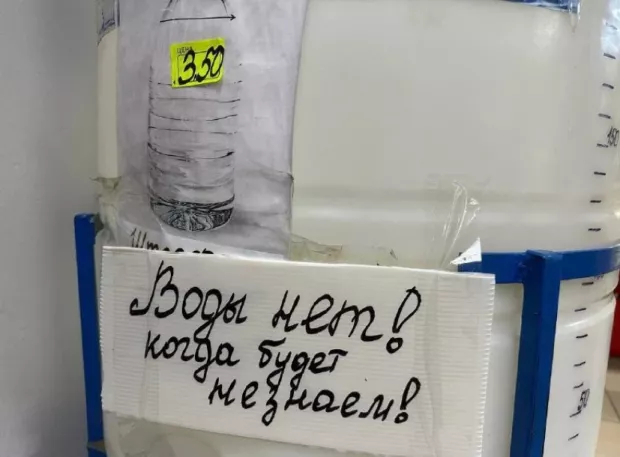 ЦЕНА
3.50
150
Воды нет!
когда будет
незнаем!
50